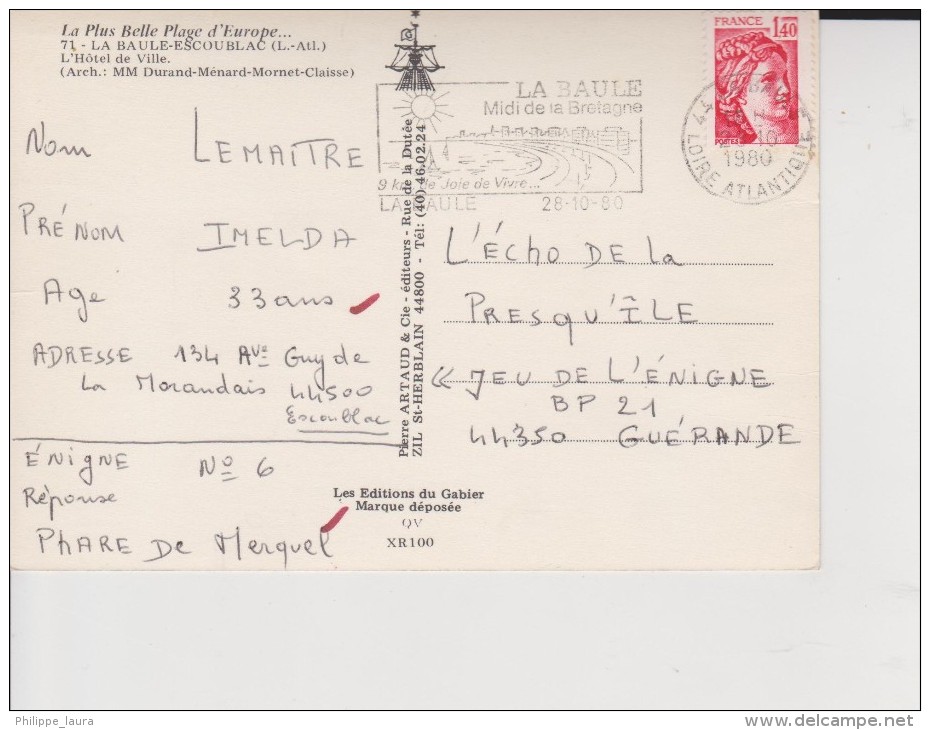 La Plus Belle Plage d'Europe...
71 - LA BAULE-ESCOUBLAC (L.-Atl.)
L'Hôtel de Ville.
(Arch.: MM Durand-Ménard-Mornet-Claisse)
Nom LEMAITRE
PRÉNOM IMELDA
Age 33 ans
ADRESSE 134 AVe Guy de
La Morandais 44500
Escoublac
ÉNIGNE No 6
Réponse
PhARE De Merquel
Pierre ARTAUD & Cie - éditeurs - Rue de la Dutée
ZIL St-HERBLAIN 44800 - Tél: (40) 46.02.24
Les Editions du Gabier
Marque déposée
QV
XR100
LA BAULE
Midi de la Bretagne
9 km de Joie de Vivre...
LA BAULE 28-10-80
FRANCE
1,40
POSTES
1980
44 LOIRE ATLANTIQUE
L'ÉCho DE La
PRESQU'ÎLE
« JEU DE L'ÉNIGNE
BP 21
44350 GUÉRANDE
Philippe_laura
www.delcampe.net